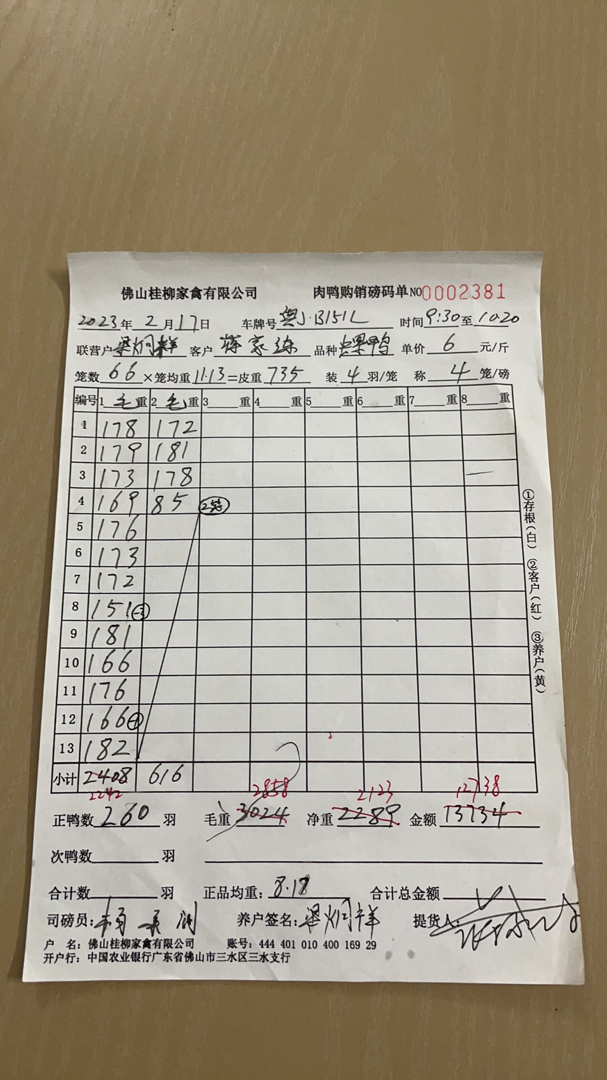 佛山桂柳家禽有限公司 肉鸭购销磅码单 NO 0002381
2023年 2月17日 车牌号 粤J·B151L 时间 9:30 至 1020
联营户 梁炯祥 客户 品种 鸭 单价 6 元/斤
笼数 66 ×笼均重 11.13 =皮重 735 装 4 羽/笼 称 4 笼/磅
编号 1 毛 重 2 毛 重 3 重 4 重 5 重 6 重 7 重 8 重
1 178 172
2 179 181
3 173 178
4 169 85
5 176
6 173
7 172
8 151
9 181
10 166
11 176
12 166
13 182
小计 2408 616
2242 2858 2123 12738
正鸭数 260 羽 毛重 3024 净重 2289 金额 13734
次鸭数 羽
合计数 羽 正品均重: 8.17 合计总金额
司磅员: 养户签名: 梁炯祥 提货人:
户 名: 佛山桂柳家禽有限公司 账号: 444 401 010 400 169 29
开户行: 中国农业银行广东省佛山市三水区三水支行
①存根(白) ②客户(红) ③养户(黄)